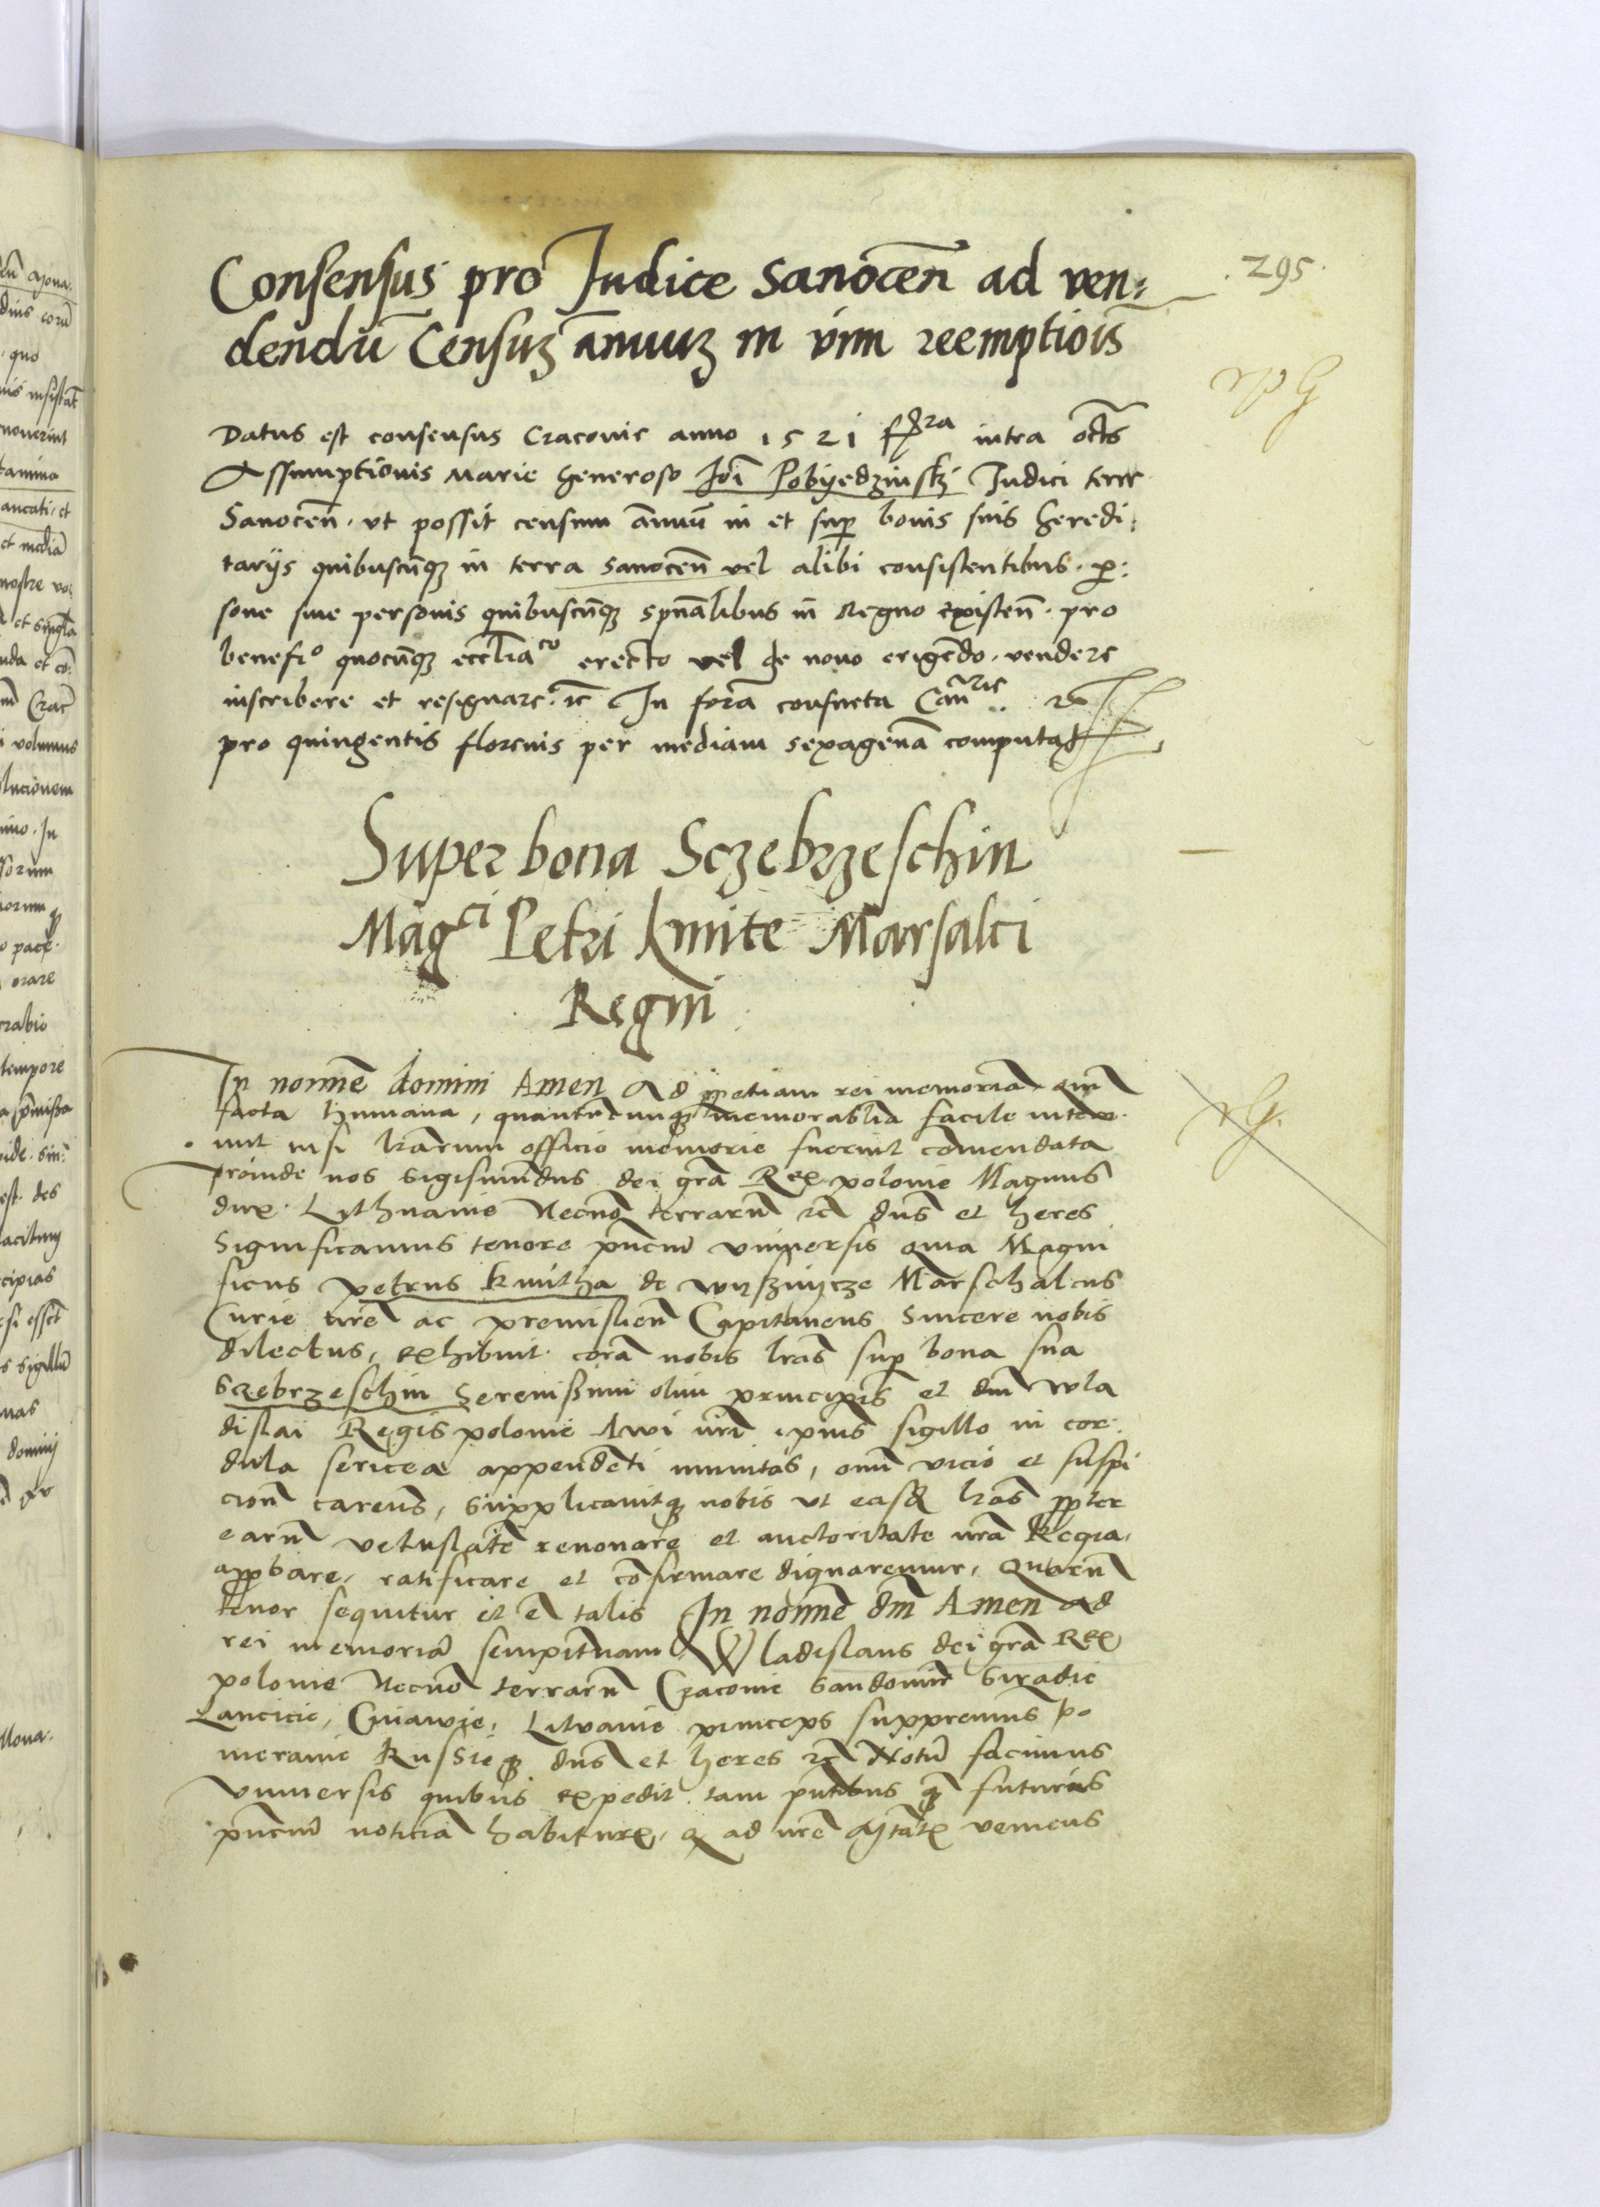 295.
Consensus pro Judice Sanocen̄ ad ven:
dendū Censuʒ annuuʒ in vim reemptiōis
Datus est consensus Cracovie anno 1521 intra octs
Assumptionis Marie Generoso Joī Pobyedzinskj Judici terre
Sanocen̄. ut possit censum annuū in et sup̱ bonis suis heredi:
tarijs quibuscūqʒ in terra sanocen̄ vel alibi consistentibus. p̱:
sone siue personis quibuscūqʒ spūalibus in Regno existen̄. pro
benefio quocūqʒ eccliaco erecto vel de nouo erigēdo. vendere
inscribere et resignare. ꝛc̄ In forā consueta Canrie
pro quingentis florenis per mediam sexagenā computat
Super bona Sczebrzeschin
Magci Petri kmite Marsalci
Regni
In nomīe domini Amen Ad p̱petuam rei memoriā. Qm̄
facta humana, quantūcunqʒ memorabilia facile
nisi lrarum officio memorie fuerint comendata
proinde nos Sigismūndus dei grā Rex polonie Magnus
dux Lythuanie Necnō terrarū ꝛc̄ dns̄ et heres
Significamus tenore pn̄tiū vniuersis quia Magni
ficus petrus kmitha de wyszniycze Marschalcus
Curie nrē ac premislien̄ Capitaneus Sincere nobis
dilectus, exhibuit corā nobis lrās sup̱ bona sua
Szebrzeschin Serenissimi olim principis et dnī wla
dislai Regis polonie Awi nrī ipius sigillo in cor:
dula sericea appendēti munitas, omī vicio et suspi
cionē carens, supplicauitqʒ nobis ut easdē lrās p̱pter
earū vetustatē renouare et auctoritate nrā Regia,
app̱bare, ratificare et cōfirmare dignaremur, Quarū
tenor sequitur et ē talis In nomīe dnī Amen ad
rei memoriā sempitnam Wladislaus dei grā Rex
polonie Necnō terrarū Cracovie Sandomirie Siradie
Lancicie, Cuiavie, Litvanie princeps suppremus po
meranie Russieqʒ dns̄ et heres ꝛc̄ Notū facimus
vniuersis quibus expedit. tam pn̄tibus qʒ futuris
pn̄tiū noticiā habituris, Qʒ ad nrē Mtatis veniens